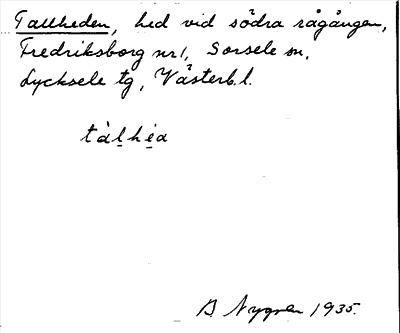 Tallheden, hed vid södra rågången,
Fredriksborg nr 1, Sorsele sn,
Lycksele tg, Västerb. l.
tàl̲hė̲a
B Nygren 1935.